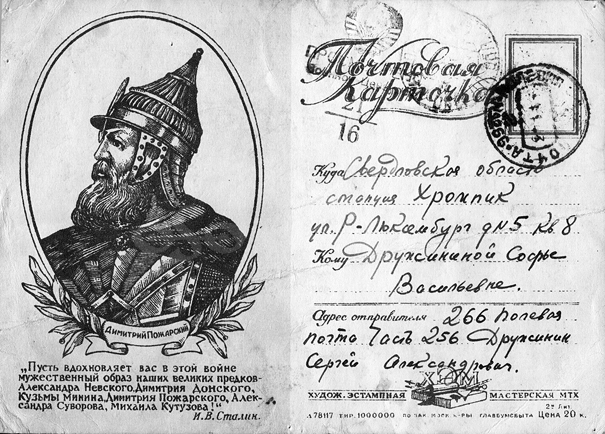 Димитрий Пожарский
„Пусть вдохновляет вас в этой войне
мужественный образ наших великих предков-
Александра Невского, Димитрия Донского,
Кузьмы Минина, Димитрия Пожарского, Алек-
сандра Суворова, Михаила Кутузова!“
И.В.Сталин.
Почтовая
Карточка
16
Куда Свердловская область
станция Хромпик
ул. Р-Люксембург д № 5 кв. 8
Кому Дружининой Софье
Васильевне.
Адрес отправителя 266 Полевая
почта Часть 256 Дружинин
Сергей Александрович.
ХУДОЖ. ЭСТАМПНАЯ МАСТЕРСКАЯ МТХ
Л78117 ТИР. 1000000 Цена 20 к.